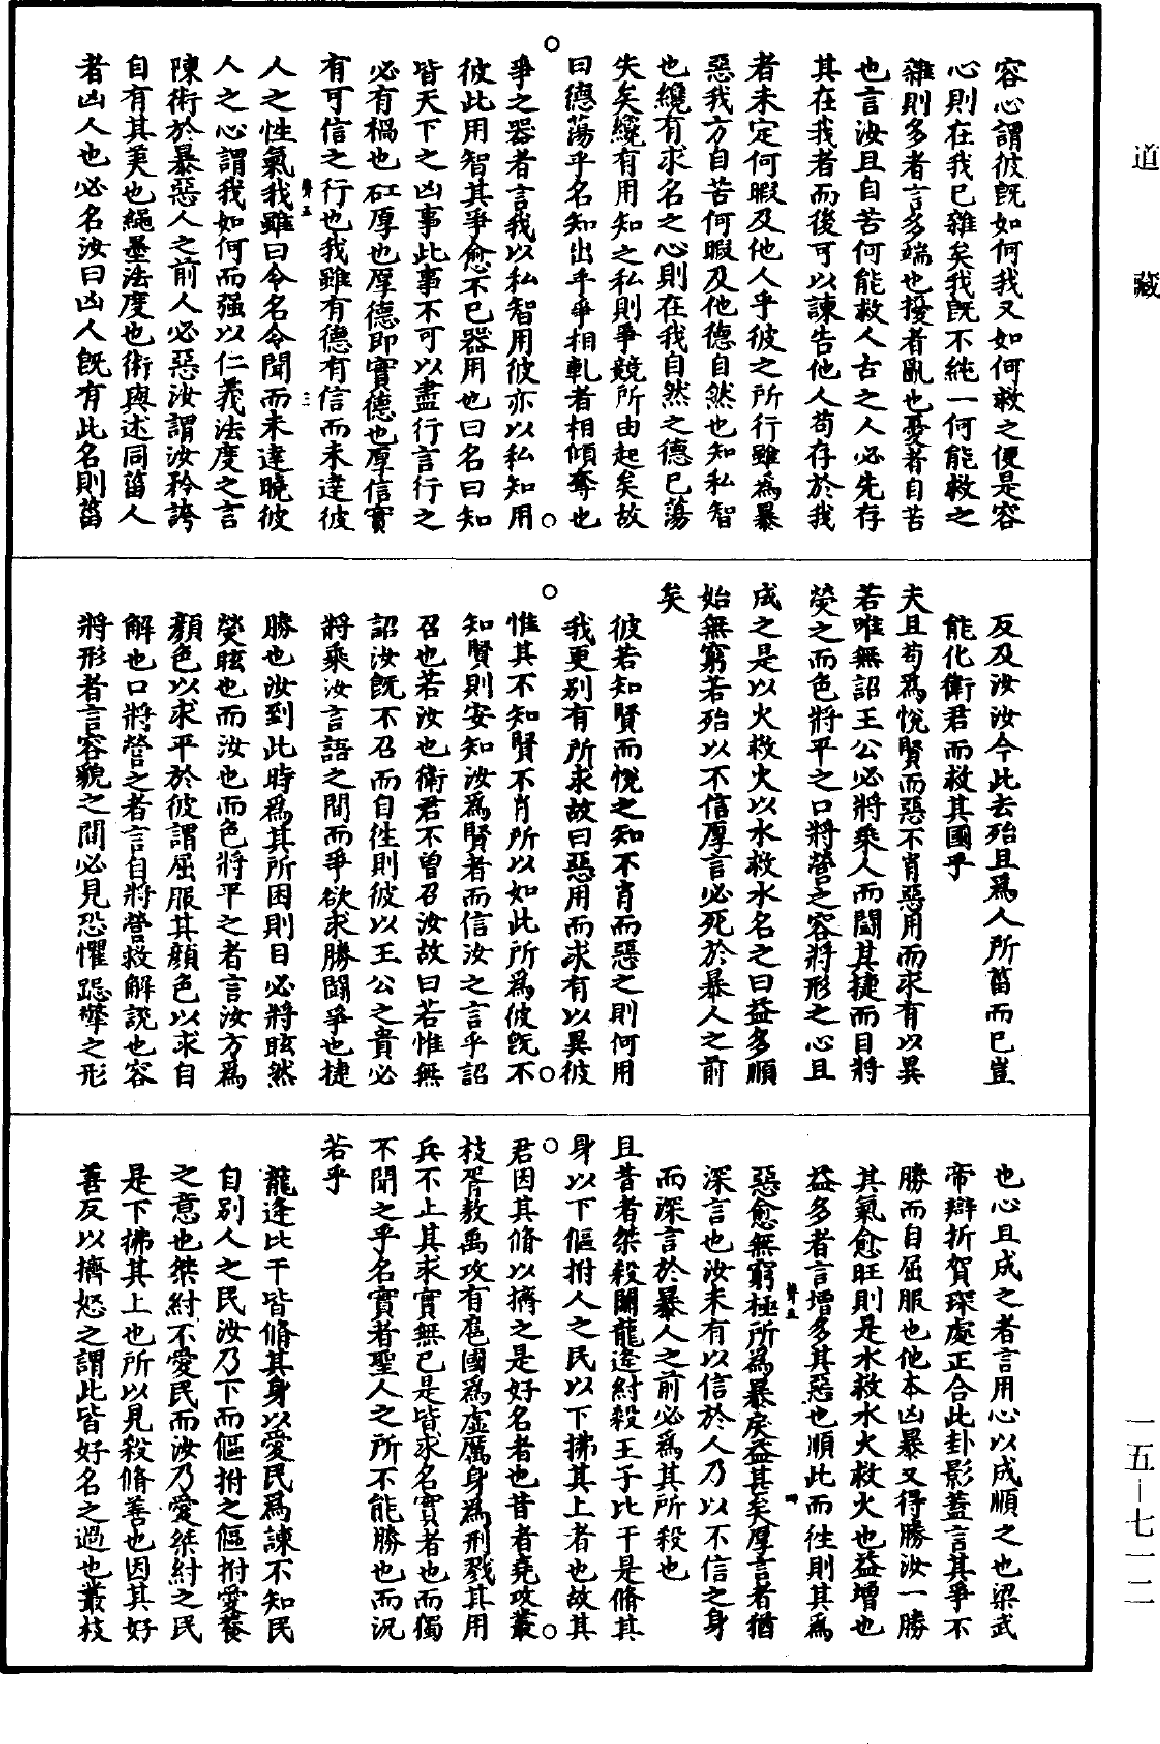 道藏
容心謂彼既如何我又如何救之便是容
心則在我已雜矣我既不純一何能救之
雜則多者言多端也擾者亂也憂者自苦
也言汝且自苦何能救人古之人必先存
其在我者而後可以諫告他人苟存於我
者未定何暇及他人乎彼之所行雖為暴
惡我方自苦何暇及他德自然也知私智
也纔有求名之心則在我自然之德已蕩
失矣纔有用知之私則爭競所由起矣故
曰德蕩乎名知出乎爭相軋者相傾奪也
爭之器者言我以私智用彼亦以私知用
彼此用智其爭愈不已器用也曰名曰知
皆天下之凶事此事不可以盡行言行之
必有禍也矼厚也厚德即實德也厚信實
有可信之行也我雖有德有信而未達彼
人之性氣我雖曰令名令聞而未達曉彼
人之心謂我如何而强以仁義法度之言
陳術於暴惡人之前人必惡汝謂汝矜誇
自有其美也繩墨法度也術與述同菑人
者凶人也必名汝曰凶人既有此名則菑
反及汝汝今此去殆且為人所菑而已豈
能化衛君而救其國乎
夫且苟為悅賢而惡不肖惡用而求有以異
若唯無詔王公必將乘人而鬭其捷而目將
熒之而色將平之口將營之容將形之心且
成之是以火救火以水救水名之曰益多順
始無窮若殆以不信厚言必死於暴人之前
矣
彼若知賢而悅之知不肖而惡之則何用
我更别有所求故曰惡用而求有以異彼
惟其不知賢不肖所以如此所為彼既不
知賢則安知汝為賢者而信汝之言乎詔
召也若汝也衛君不曾召汝故曰若惟無
詔汝既不召而自往則彼以王公之貴必
將乘汝言語之間而爭欲求勝鬭爭也捷
勝也汝到此時為其所困則目必將眩然
熒眩也而汝也而色將平之者言汝方為
顏色以求平於彼謂屈服其顏色以求自
解也口將營之者言自將營救解說也容
將形者言容貌之間必見恐懼跽擎之形
也心且成之者言用心以成順之也梁武
帝辯折賀琛處正合此卦影蓋言其爭不
勝而自屈服也他本凶暴又得勝汝一勝
其氣愈旺則是水救水火救火也益增也
益多者言增多其惡也順此而往則其為
惡愈無窮極所為暴戾益甚矣厚言者猶
深言也汝未有以信於人乃以不信之身
而深言於暴人之前必為其所殺也
且昔者桀殺關龍逢紂殺王子比干是脩其
身以下傴拊人之民以下拂其上者也故其
君因其脩以擠之是好名者也昔者堯攻叢
枝胥敖禹攻有扈國為虛厲身為刑戮其用
兵不止其求實無已是皆求名實者也而獨
不聞之乎名實者聖人之所不能勝也而況
若乎
龍逢比干皆脩其身以愛民為諫不知民
自别人之民汝乃下而傴拊之傴拊愛養
之意也桀紂不愛民而汝乃愛桀紂之民
是下拂其上也所以見殺脩善也因其好
善反以擠怒之謂此皆好名之過也叢枝
一五—七一二